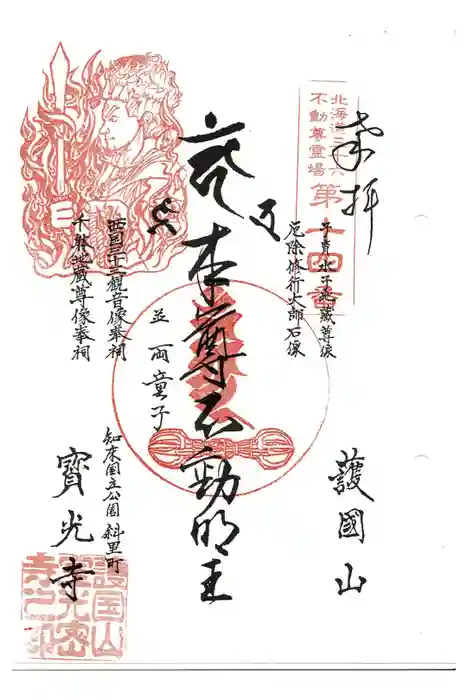 奉拝
北海道三十六
不動尊霊場
第十四番
子育水子地蔵尊像
厄除修行大師石像
本尊不動明王
並両童子
西国三十三観音像奉祠
千躰地蔵尊像奉祠
護國山
知床国立公園 斜里町
寳光寺